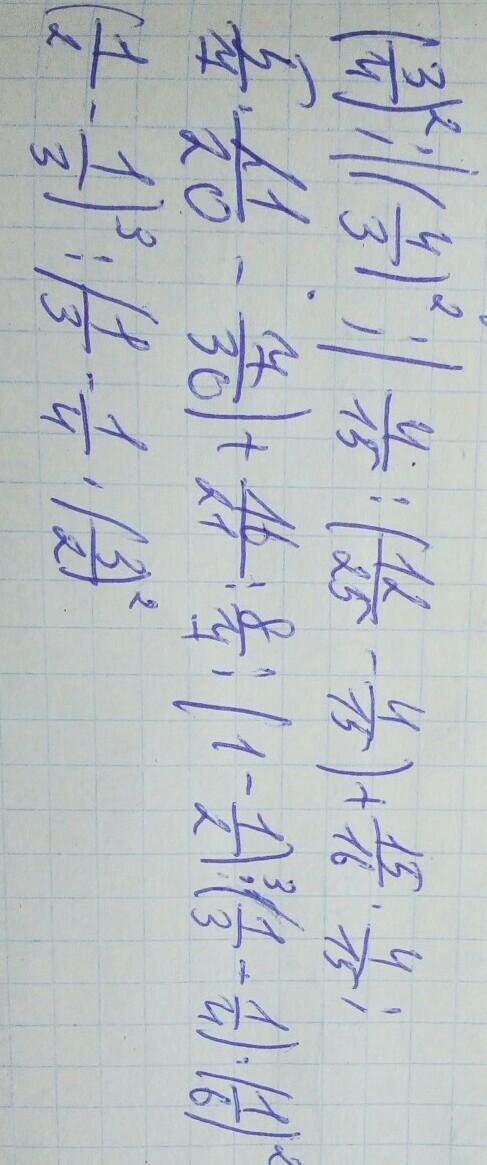 (3/4)²; |(4/3)²; | 4/15 : (12/25 - 4/15) + 15/16 · 4/15;
5/7 · (11/20 - 7/30) + 16/21 : 8/7; (1 - 1/2)³ : (1/3 - 1/4) · (1/6)²
(1/2 - 1/3)³ : (1/3 - 1/4 · (3/2)²